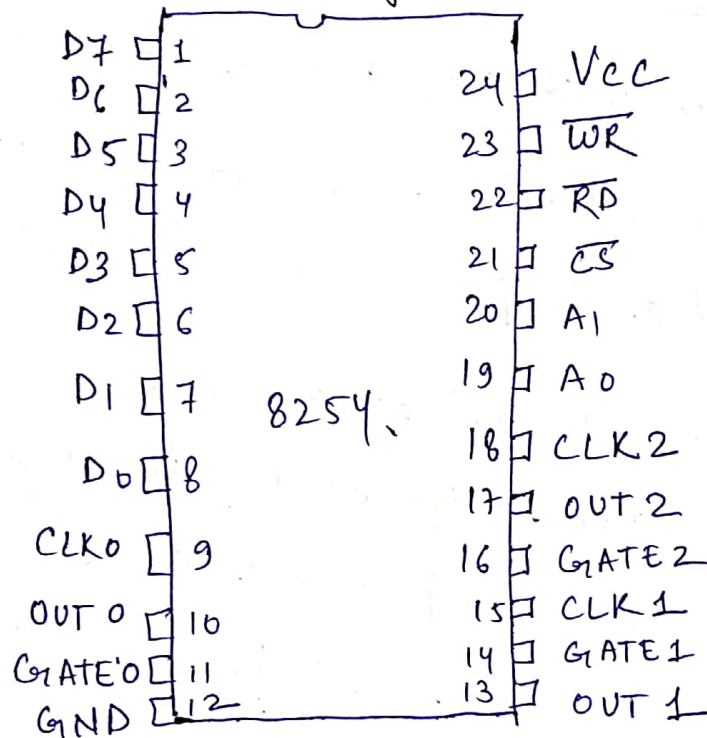 D7 1
D6 2
D5 3
D4 4
D3 5
D2 6
D1 7
D0 8
CLK0 9
OUT 0 10
GATE'0 11
GND 12
8254
24 Vcc
23 W̅R̅
22 R̅D̅
21 C̅S̅
20 A1
19 A0
18 CLK2
17 OUT 2
16 GATE2
15 CLK 1
14 GATE1
13 OUT 1